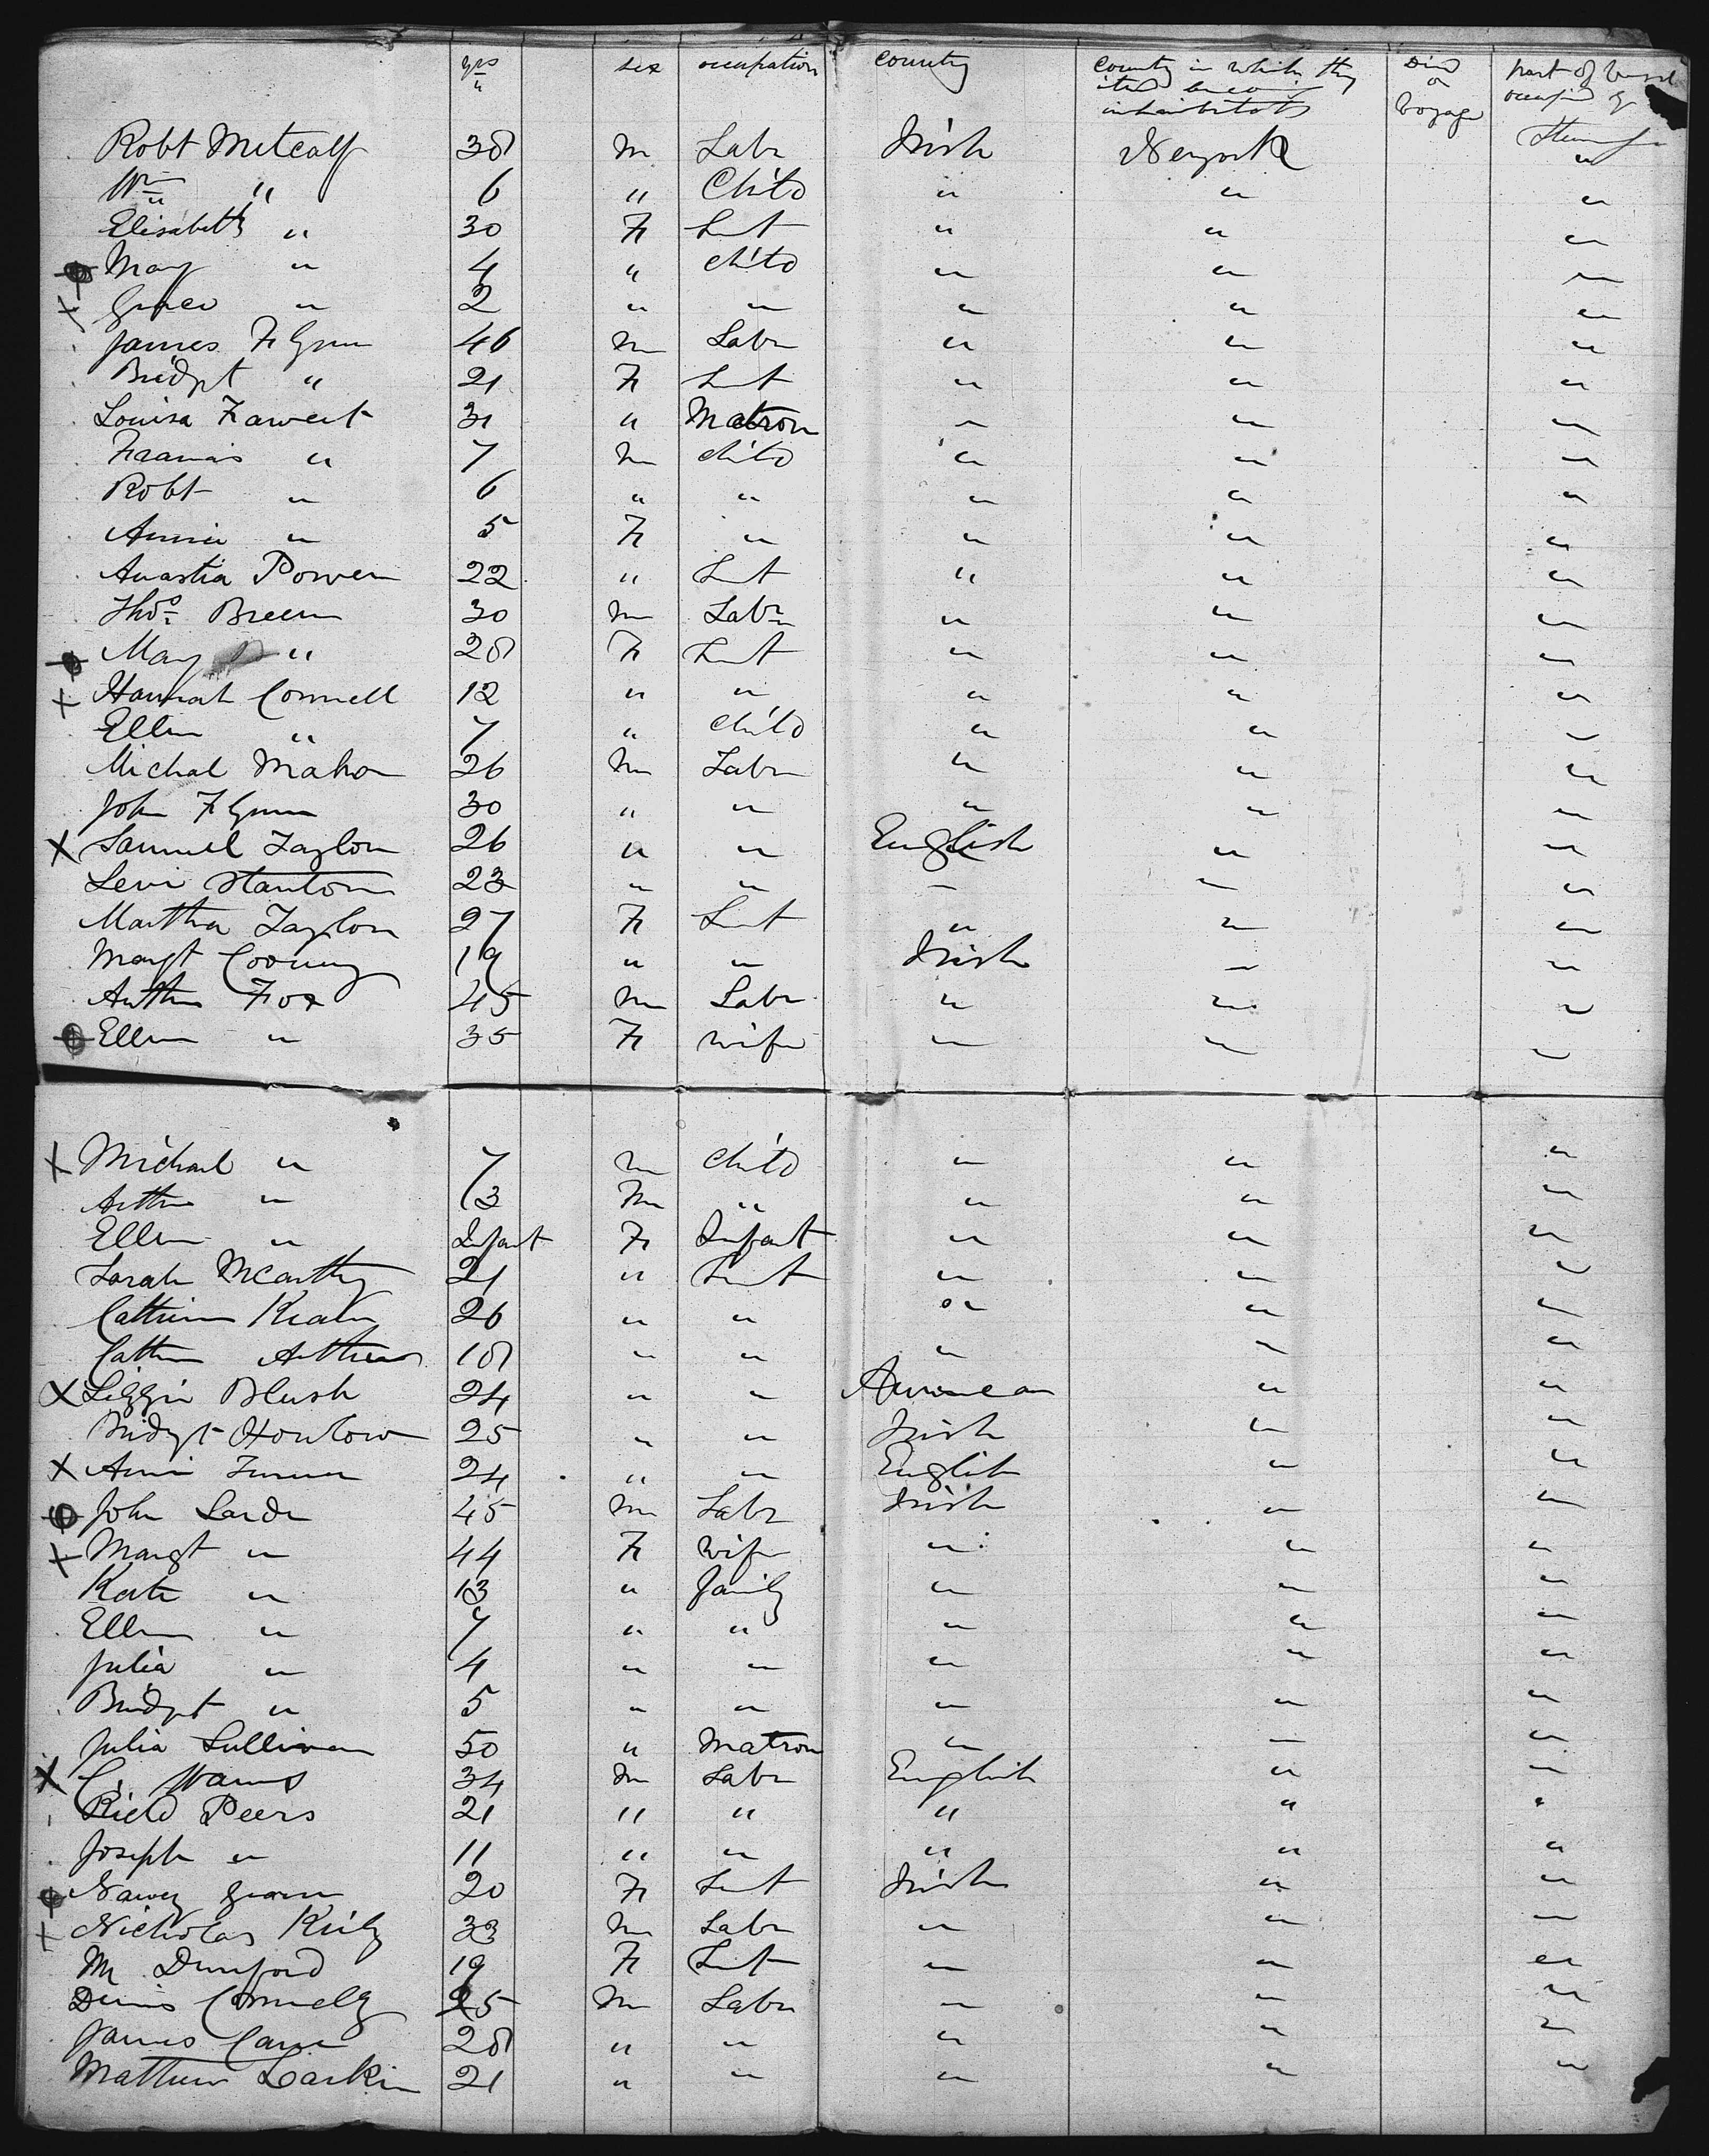 yrs sex occupation country country in which they Died part of vessel
on occupied
inhabitants voyage
Robt Metcalf 38 m Labr Irish Newyork "
Wm " 6 " Child " " "
Elisabeth " 30 F " " "
Mary " 4 " child " " "
Grace " 2 " " " " "
James Flynn 46 m Labr " " "
Bridgt " 21 F " " "
Louisa Fawcet 31 " Matron " " "
Francis " 7 m child " " "
Robt " 6 " " " " "
Annie " 5 F " " " "
Anastia Power 22 " " " "
Thos Breen 30 m Labr " " "
Mary " 28 F " " "
Hannah Connell 12 " " " " "
Ellen " 7 " child " " "
Michal Mahon 26 m Labr " " "
John Flynn 30 " " " " "
X Samuel Taylor 26 " " English " "
Levi Stanton 23 " " " " "
Martha Taylor 27 F " " "
Margt Cooney 19 " " Irish " "
Arthur Fox 45 m Labr " " "
Ellen " 35 F wife " " "
X Michael " 7 m child " " "
Arthur " 3 m " " " "
Ellen " Infant F Infant " " "
Sarah McCarthy 21 " " " "
26 " " " " "
18 " " " " "
X Lizzie Blush 24 " " American " "
Bridgt 25 " " Irish " "
X Annie Turner 24 " " English " "
John 45 m Labr Irish " "
Margt " 44 F wife " " "
Kate " 13 " family " " "
Ellen " 7 " " " " "
Julia " 4 " " " " "
Bridgt " 5 " " " " "
Julia Sullivan 50 " Matron " " "
X C. 34 m Labr English " "
Richd Peers 21 " " " " "
Joseph " 11 " " " " "
Nancy 20 F Irish " "
Nicholas Kiely 33 m Labr " " "
M Dunford 19 F " " "
Dennis Connelly 25 m Labr " " "
James 28 " " " " "
Matthew Larkin 21 " " " " "